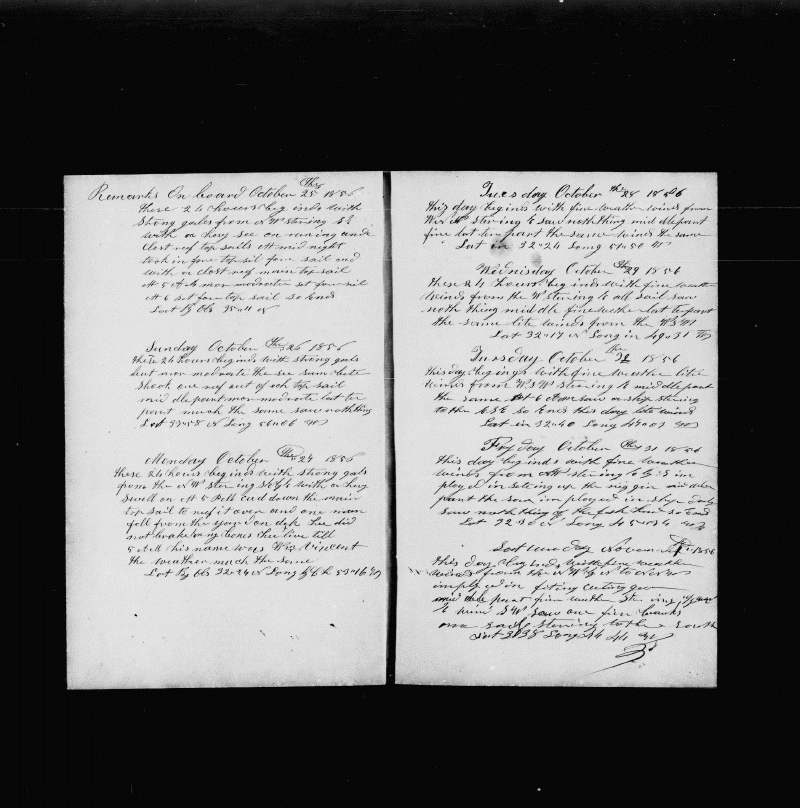 Remarks On board October 25 th 1856
these 24 hours beg inds with
Strong gales from N W stering
with a hevy see on runing unde
Clost reef top sails At mid night
took in fore top sil fore sail and
with a clost reef main top sail
At 5 A M mor modrate set fore sil
At 6 set fore top sail so Ends
Lat By Obs 35-11 N
Sunday October th 26 1856
these 24 hours beginds with strong gals
but mor modrate the see sum
shook one reef out of ech top sail
mid dle part mor modrate lat ter
part much the same saw noth thing
Lat 33-58 N Long 56-06 W
Monday October th 27 1856
these 24 hours beg inds with strong gals
from the N W stering S E by E with a hevy
Swell on At 5 A M Cald down the main
top sail to reef it over and one man
fell from the yard on dek hee did
not brake any bones Hee live till
5 A M his name was Wm Vincent
the weather much the same
Lat By Obs 32-24 N Long By Ch 53-16 W
Tuesday October the 28 1856
this day beginds with fine weath winds from
W N W stering E saw noth thing mid dle part
fine lat ter part the same winds the same
Lat in 32-24 Long 51-50 W
Wednisday October th 29 1856
these 24 hours beg inds with fine weathe
winds from the W stering E all sail saw
noth thing mid dle fine wether lat ter part
the same lite winds from the W S W
Lat 32-17 N Long in 49-31 W
Tuesday October the 30 1856
this day begings with fine weathe lite
winds from W S W stering E mid dle part
the same At 6 A M saw a ship stering
to the E S E so Ends this day lite winds
Lat in 32-40 Long 47-07 W
Fryday October th 31 1856
this day beg inds with fine weather
winds from stering E by S im
ployed in seting up the rig gin mid dle
part the same im ployed in ship duty
saw noth thing of the fish kind so End
Lat 32-30 N Long 45-54 W
Sat ur day Novem 1 st 1856
this day beg inds with fine weather
winds from
imployd in fiting cuting gear
mid dle part fine weath Ster ing
E wind S W Saw one fin backs
one sail stering to the South
Lat 31-38 Long 44-44 W